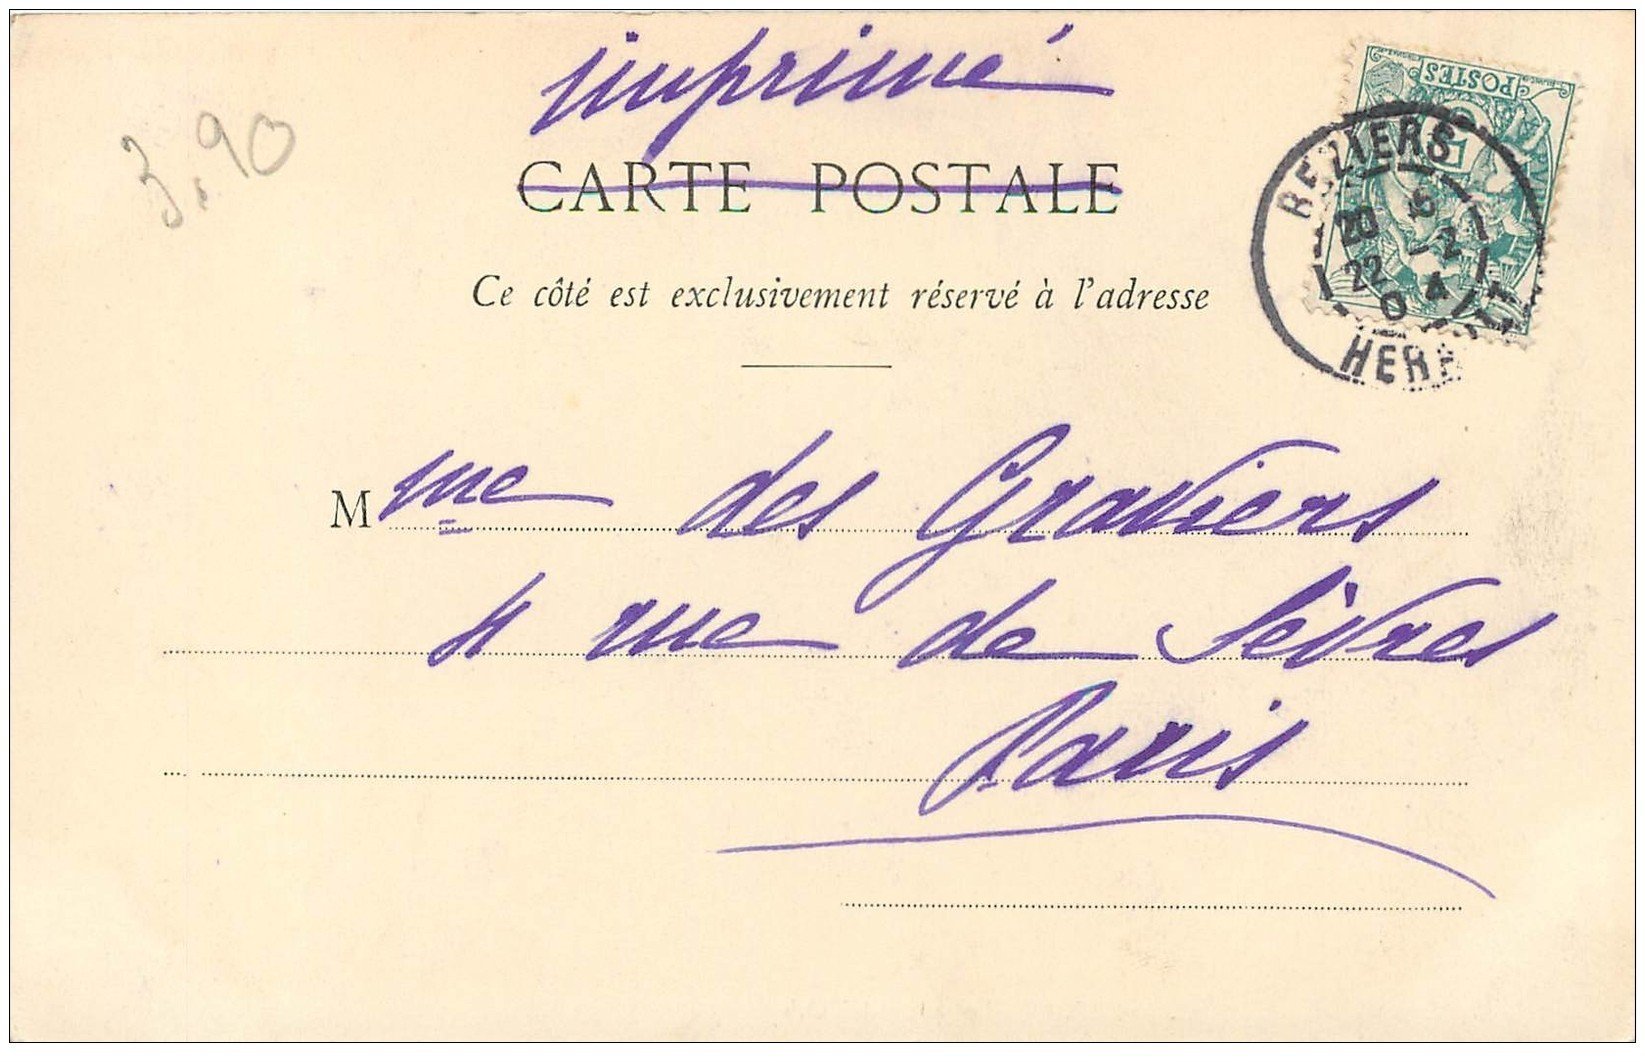 imprimé
3.90
CARTE POSTALE
Ce côté est exclusivement réservé à l'adresse
POSTES
5
BEZIERS
20 6
22 -2
04
HERAULT
Mme des Graviers
4 rue de Sèvres
Paris